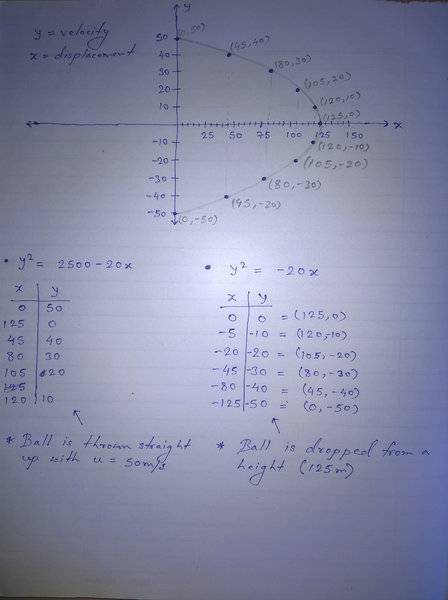 y = velocity
x = displacement
y
50
40
30
20
10
-10
-20
-30
-40
-50
25 50 75 100 125 150 x
(0,50)
(45,40)
(80,30)
(105,20)
(120,10)
(125,0)
(120,-10)
(105,-20)
(80,-30)
(45,-20)
(0,-50)
• y² = 2500-20x
x y
0 50
125 0
45 40
80 30
105 20
125
120 10
* Ball is thrown straight
up with u = 50m/s
• y² = -20x
x y
0 0 = (125,0)
-5 -10 = (120,-10)
-20 -20 = (105,-20)
-45 -30 = (80,-30)
-80 -40 = (45,-40)
-125 -50 = (0,-50)
* Ball is dropped from a
height (125m)